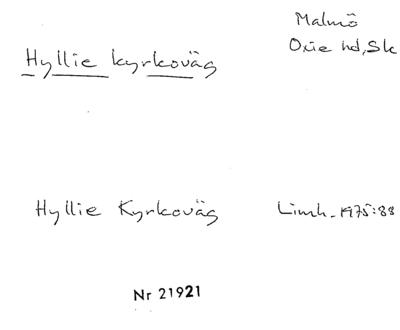 Hyllie kyrkoväg
Malmö
Oxie hd, Sk
Hyllie Kyrkoväg
Limh. 1975:88
Nr 21921